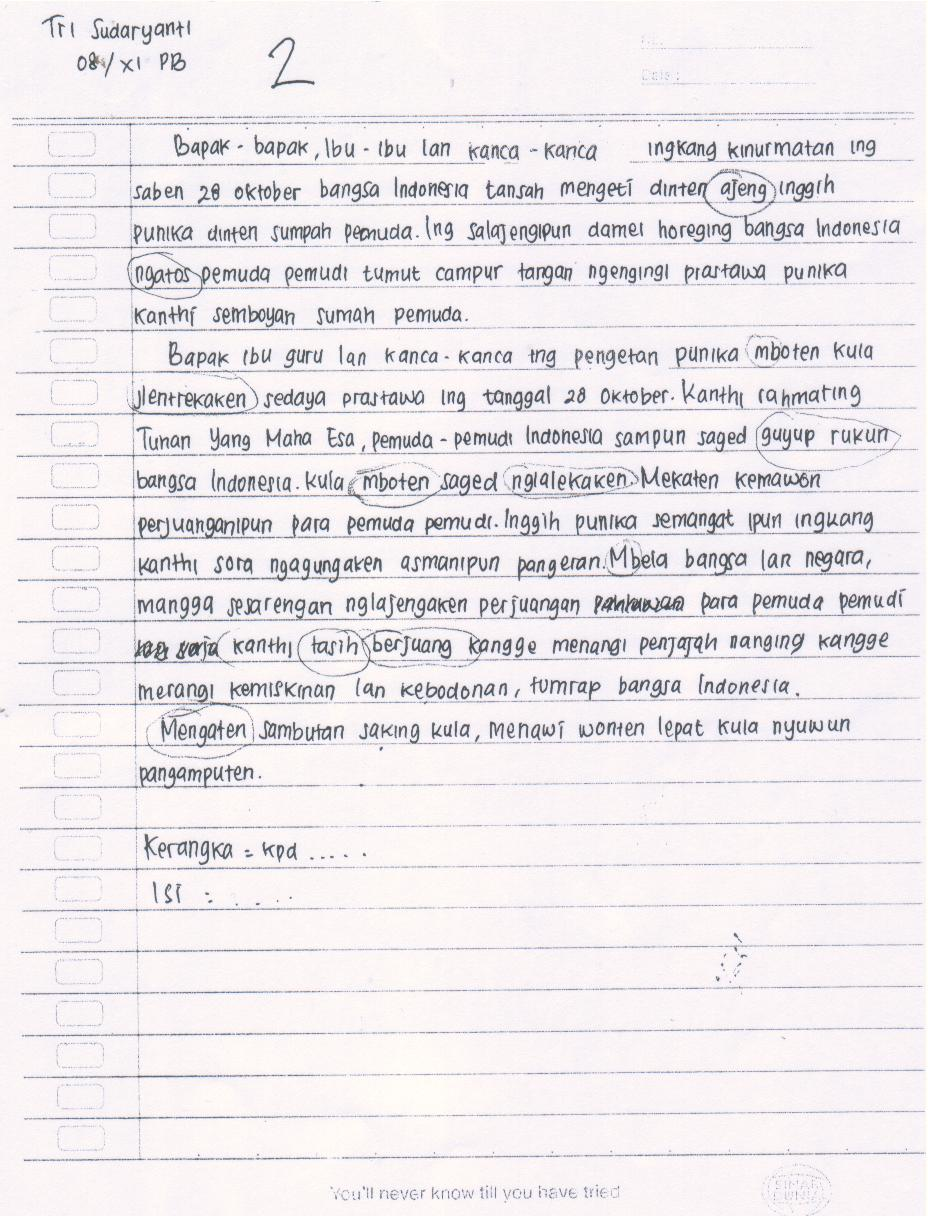 Tri Sudaryanti
08 / XI PB
2
No.
Date :
Bapak - bapak, Ibu - Ibu lan kanca - kanca ingkang kinurmatan ing
saben 28 oktober bangsa Indonesia tansah mengeti dinten ajeng inggih
punika dinten sumpah pemuda. Ing salajengipun damel horeging bangsa Indonesia
ngatos pemuda pemudi tumut campur tangan ngengingi prastawa punika
kanthi semboyan sumah pemuda.
Bapak ibu guru lan kanca-kanca ing pengetan punika mboten kula
jlentrekaken sedaya prastawa ing tanggal 28 Oktober. Kanthi rahmating
Tunan Yang Maha Esa, pemuda - pemudi Indonesia sampun saged guyup rukun
bangsa Indonesia. kula mboten saged nglalekaken. Mekaten kemawon
perjuanganipun para pemuda pemudi. Inggih punika semangat ipun ingkang
kanthi sora ngagungaken asmanipun pangeran. Mbela bangsa lan negara,
mangga sesarengan nglajengaken perjuangan para pemuda pemudi
kanthi tasih berjuang kangge menangi penjajah nanging kangge
merangi kemiskinan lan kebodonan, tumrap bangsa Indonesia.
Mengaten sambutan saking kula, menawi wonten lepat kula nyuwun
pangamputen.
Kerangka = kpd .....
Isi : ....
You'll never know till you have tried
SINAR DUNIA